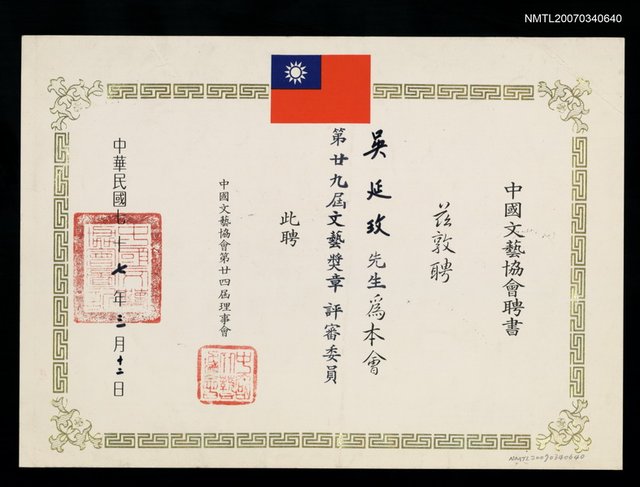 NMTL20070340640
中國文藝協會聘書
茲敦聘
吳延玫先生為本會
第廿九屆文藝獎章評審委員
此聘
中國文藝協會第廿四屆理事會
中華民國七十七年三月十二日
NMTL20070340640